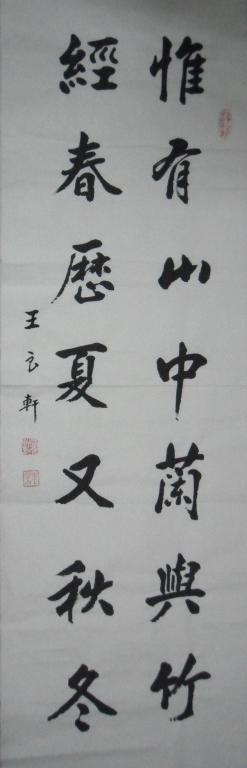 惟有山中蘭與竹
經春歷夏又秋冬
王文軒